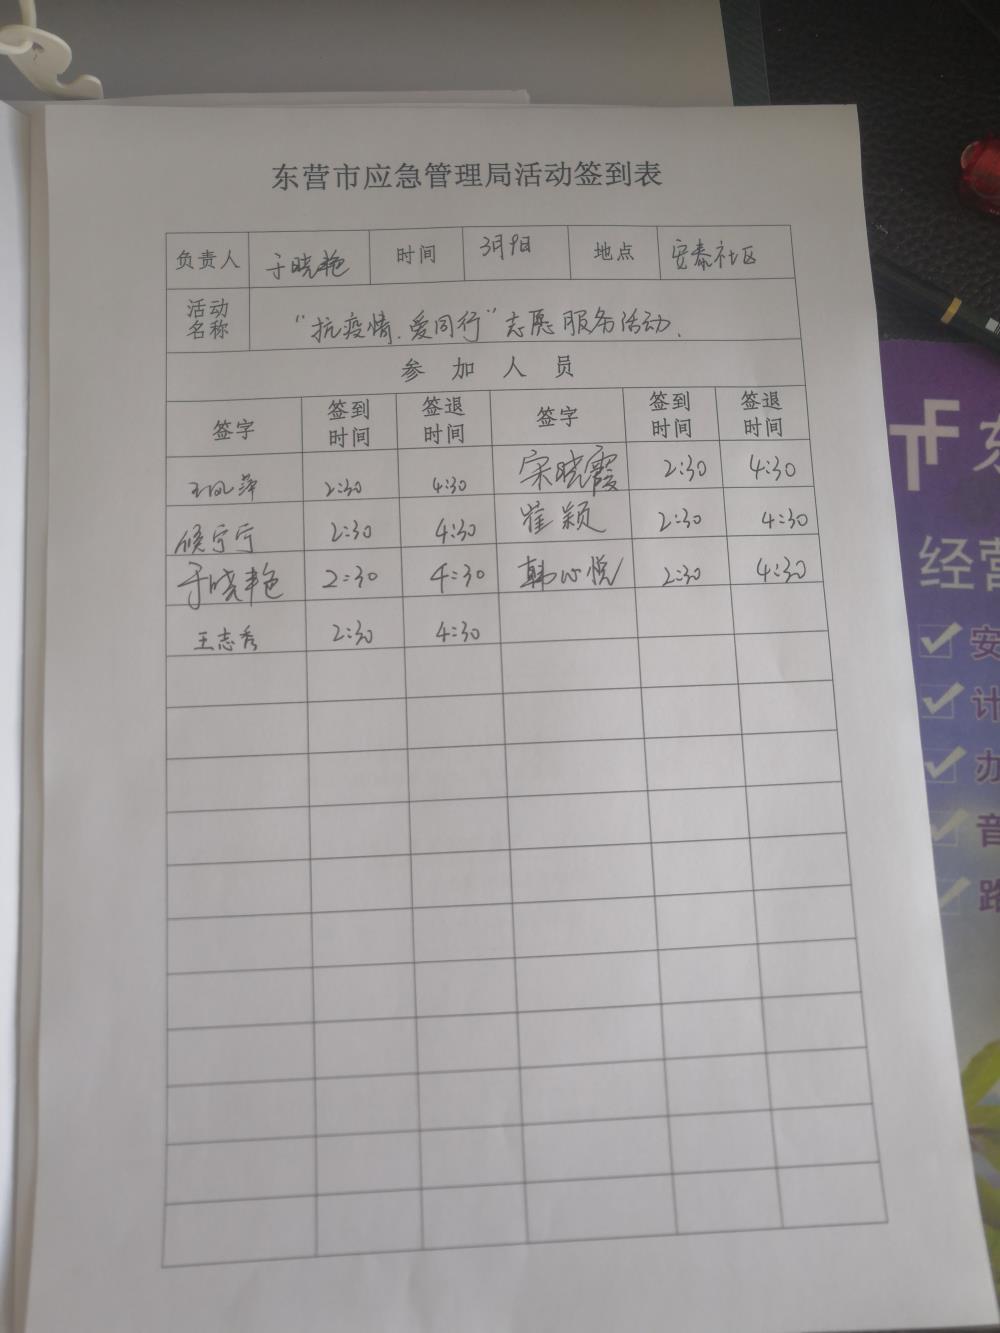 东营市应急管理局活动签到表
负责人 于晓艳 时间 3月9日 地点 安泰社区
活动名称 “抗疫情.爱同行”志愿服务活动.
参加人员
签字 签到时间 签退时间 签字 签到时间 签退时间
王凤萍 2:30 4:30 宋晓霞 2:30 4:30
侯宁宁 2:30 4:30 崔颖 2:30 4:30
于晓艳 2:30 4:30 韩心悦 2:30 4:30
王志秀 2:30 4:30
TF 东
经营
安
计
办
音
路